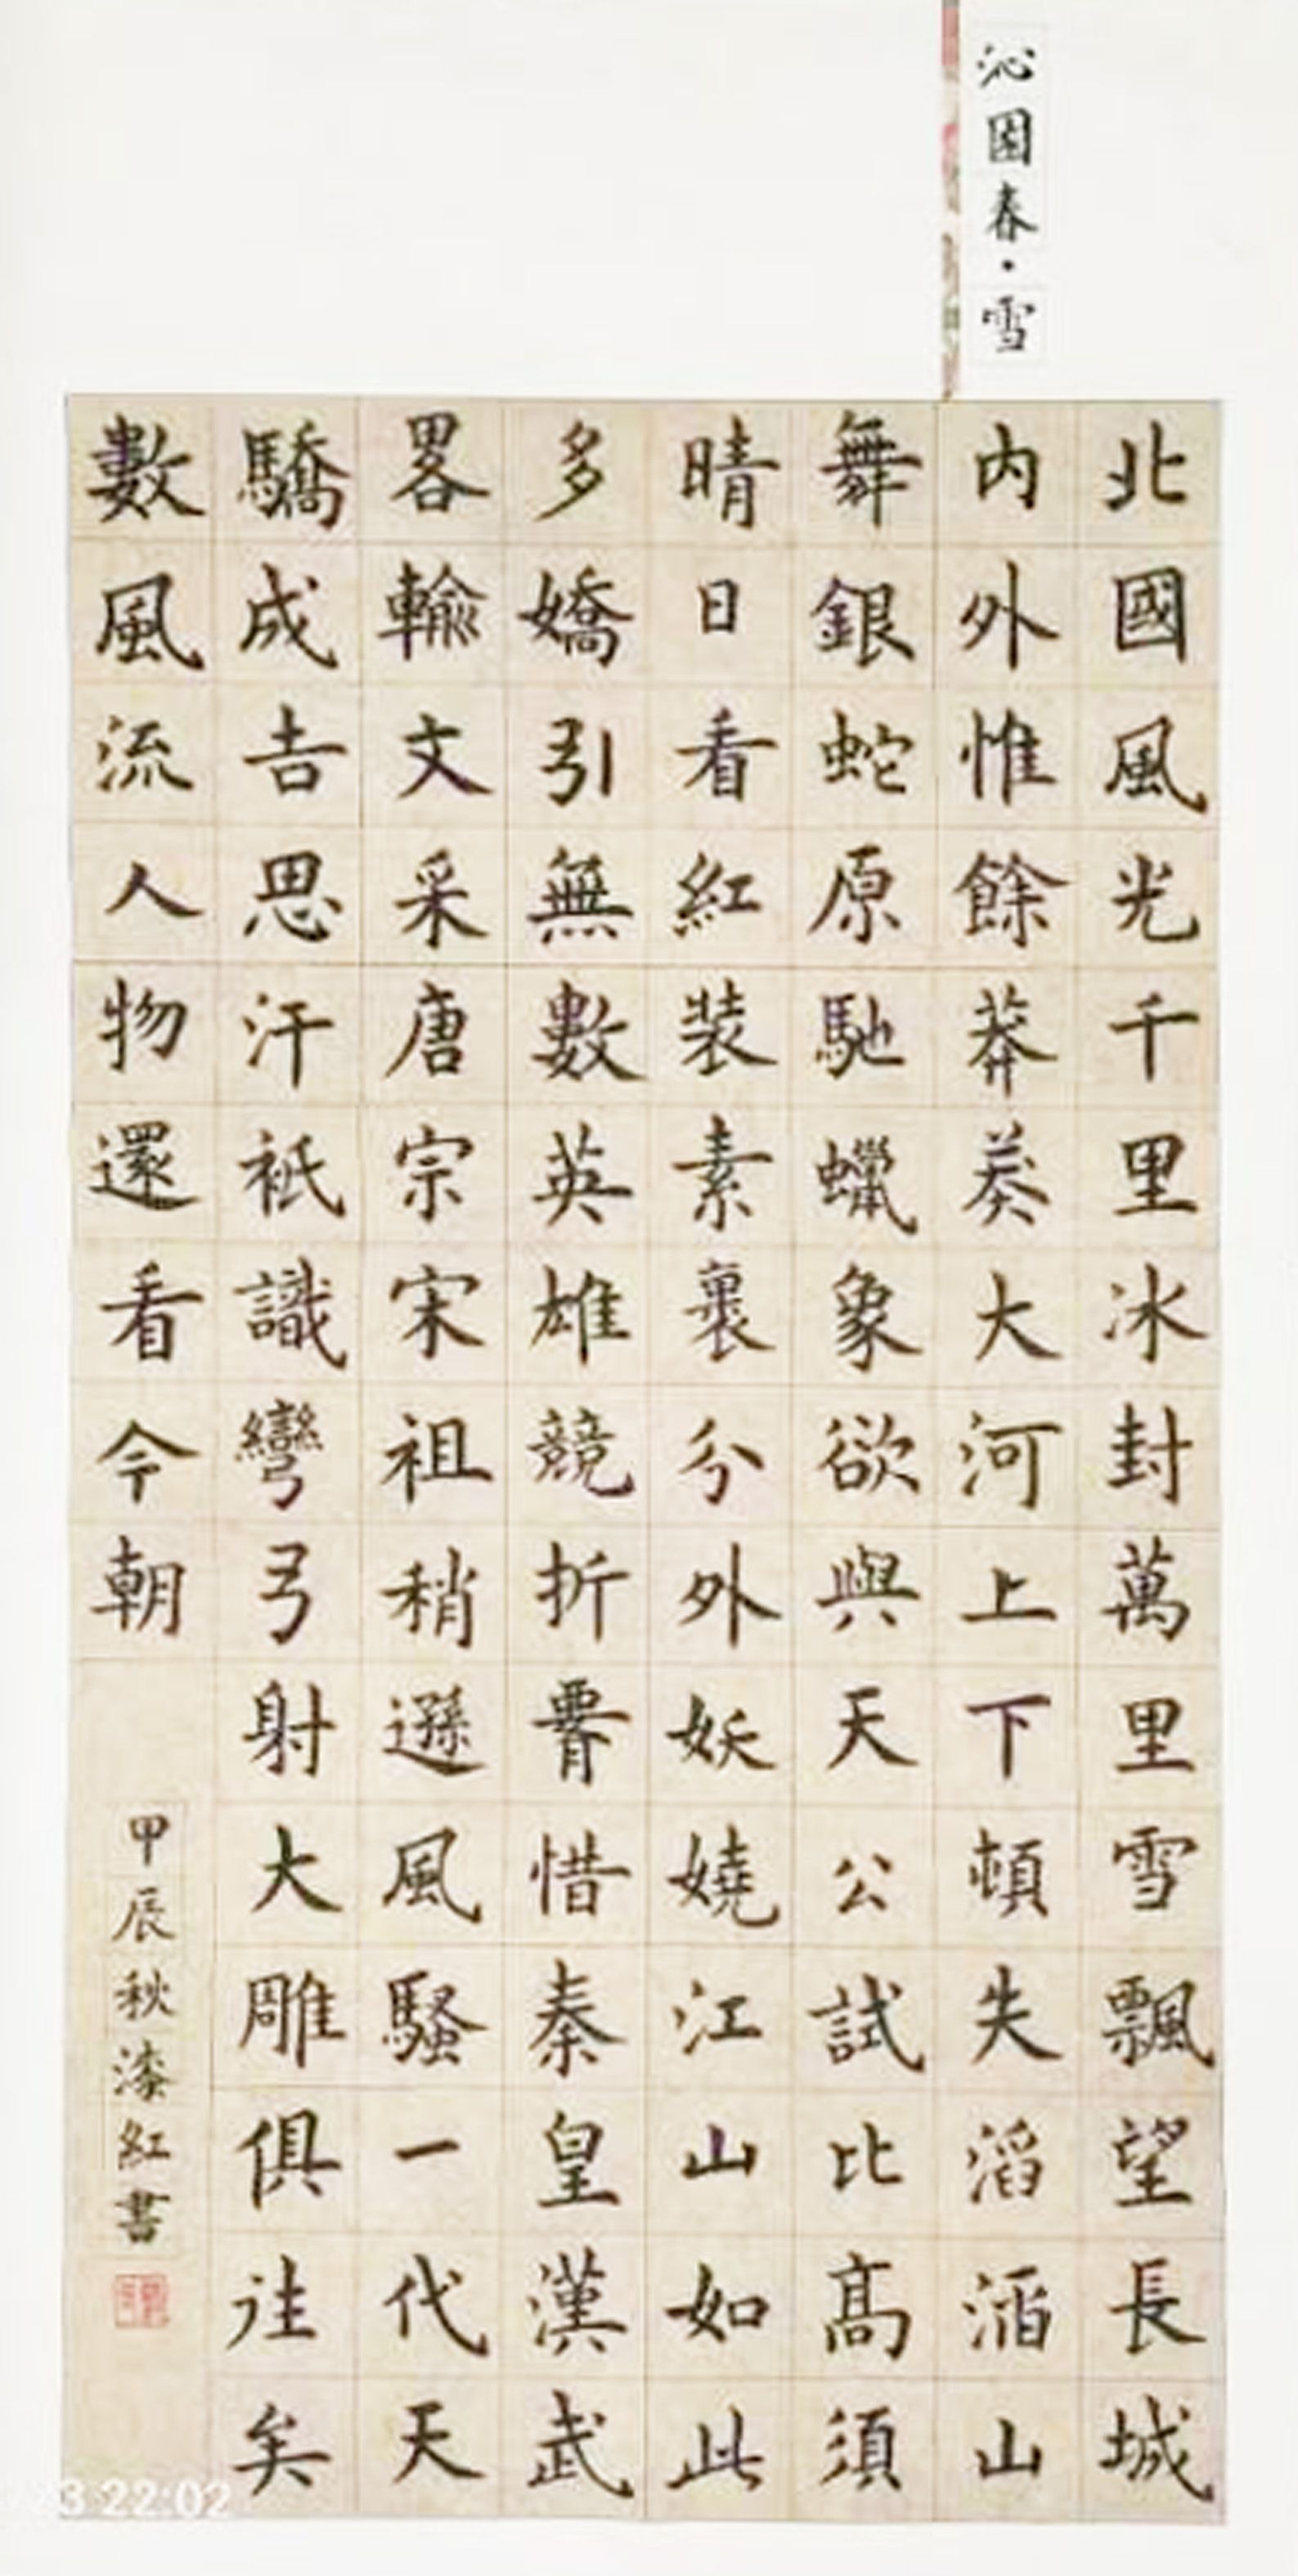 沁園春·雪
北國風光千里冰封萬里雪飄望長城
内外惟餘莽莽大河上下頓失滔滔山
舞銀蛇原馳蠟象欲與天公試比髙須
晴日看紅装素裹分外妖嬈江山如此
多嬌引無數英雄競折腰惜秦皇漢武
畧輸文采唐宗宋祖稍遜風騷一代天
驕成吉思汗祇識彎弓射大雕俱往矣
數風流人物還看今朝
甲辰秋漆紅書
22:02